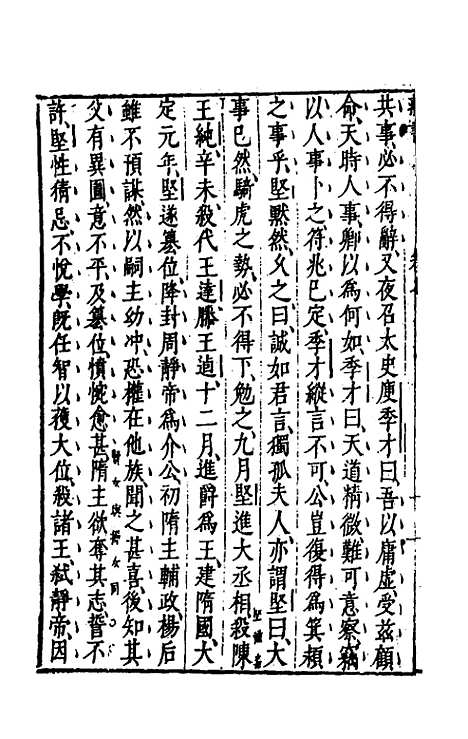 共事必不得辭又夜召太史庾季才曰吾以庸虛受茲顧
命天時人事卿以為何如季才曰天道精微難可意察竊
以人事卜之符兆已定季才縱言不可公豈復得為箕頴
之事乎堅默然久之曰誠如君言獨孤夫人亦謂堅曰大
事已然騎虎之勢必不得下勉之九月堅進大丞相殺陳
王純辛未殺代王達滕王逌十二月進爵為王建隋國大
定元年堅遂篡位降封周靜帝為介公初隋主輔政楊后
雖不預謀然以嗣主幼沖恐權在他族聞之甚喜後知其
父有異圖意不平及篡位憤惋愈甚隋主欲奪其志誓不
許堅性猜忌不悅學旣任智以獲大位殺諸王弒靜帝因